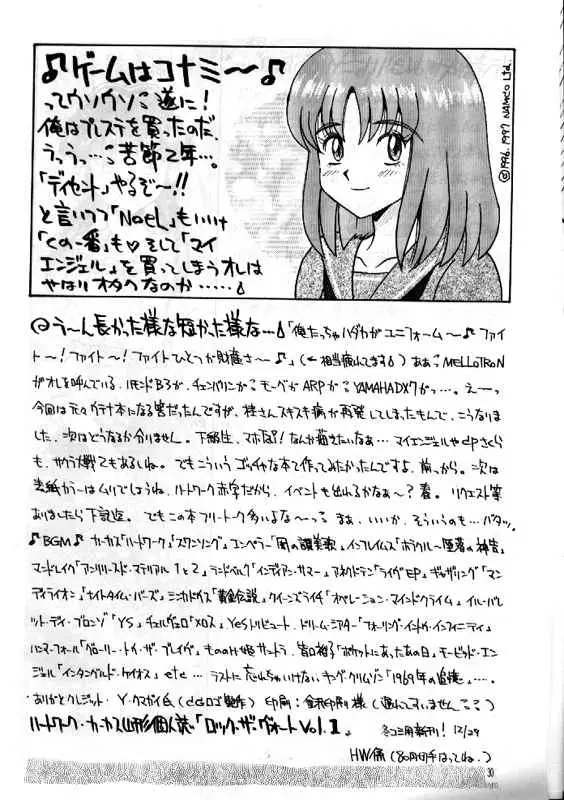 ♪ゲームはコナミ〜♪
ってウソウソ 遂に!
俺はプレステを買ったのだ.
うっうっ…苦節2年…。
「ディセント」やるぞ〜!!
と言いつつ「NoeL」もいいけ
「くの一番」も♡そして「マイ
エンジェル」を買ってしまうオレは
やはりオタクなのか……
©1996, 1997 NAMCO Ltd.
@う〜ん長かった様な短かった様な…「俺たっちゃハダカがユニフォーム〜♪ファイ
ト〜!ファイト〜!ファイトひとつが財産さ〜♪」(←相当疲れてます)ああMELLOTRON
がオレを呼んでいる.ハモンドB3か.チェンバリンか モーグか ARPか YAMAHA DX7かっ…。え〜っ
今回は元々グラナ本になる筈だったんですが、桂さんスキスキ病が再発してしまったもんで、こうなりま
した.次はどうなるか分りません。下級生、マホ なんか描きたいなぁ…マイエンジェルや
も、サクラ大戦でもあるしね。でもこういうゴッチャな本て作ってみたかったんですよ、前っから。次は
表紙カラーはムリでしょうね.ハートワーク赤字だから、イベントも出れるかなぁ〜?春。リクエスト等
ありましたら下記迄。でもこの本フリートーク多いよな〜っ まぁ、いいか、そういうのも…バタッ。
♪BGM♪カーカス「ハートワーク」「スワンソング」エンペラー「闇の讃美歌」インフレイムス「
マンドレイク「アンリリースド・マテリアル1と2」ランドベルク「インディアン・サマー」アネクドテン「ライヴEP」ギャザリング「マン
ディライオン」「ナイトタイム・バーズ」ミンカドゥス「黄金伝説」クイーンズライチ「オペレーション・マインドクライム」イル・バレ
ット・ディ・ブロンゾ「YS」チェルヴェロ「メロス」YESトリビュート.ドリーム・シアター「フォーリング・イントゥ・インフィニティ」
ハンマーフォール「グローリー・トゥ・ザ・ブレイヴ」もののけ姫サントラ.皆口裕子「ポケットにあったあの日」モービッド・エン
ジェル「インタングルド・ケイオス」etc…ラストに忘れちゃいけないキング・クリムゾン「1969年の追憶」….
ありがとクレジット・Y・クマガイ氏( ロゴ製作)印刷:金沢印刷様(遅れてすいません)
ハートワーク・カーカス山形個人誌「ロック・ザ・ヴォート Vol.1」 冬コミ用新刊! 12/29
HW係(80円切手はってね.)
30